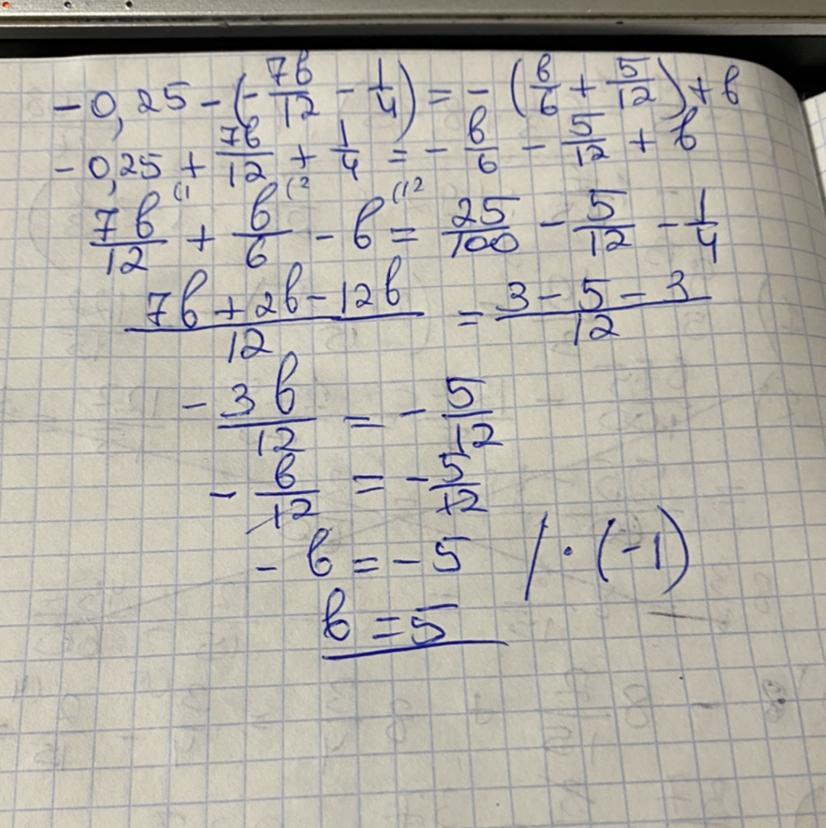 -0,25-(-7в/12-1/4)=-(в/6+5/12)+в
-0,25+7в/12+1/4=-в/6-5/12+в
7в/12(1+в/6(2-в(12=25/100-5/12-1/4
7в+2в-12в/12=3-5-3/12
-3в/12=-5/12
-в/12=-5/12
-в=-5 /·(-1)
в=5